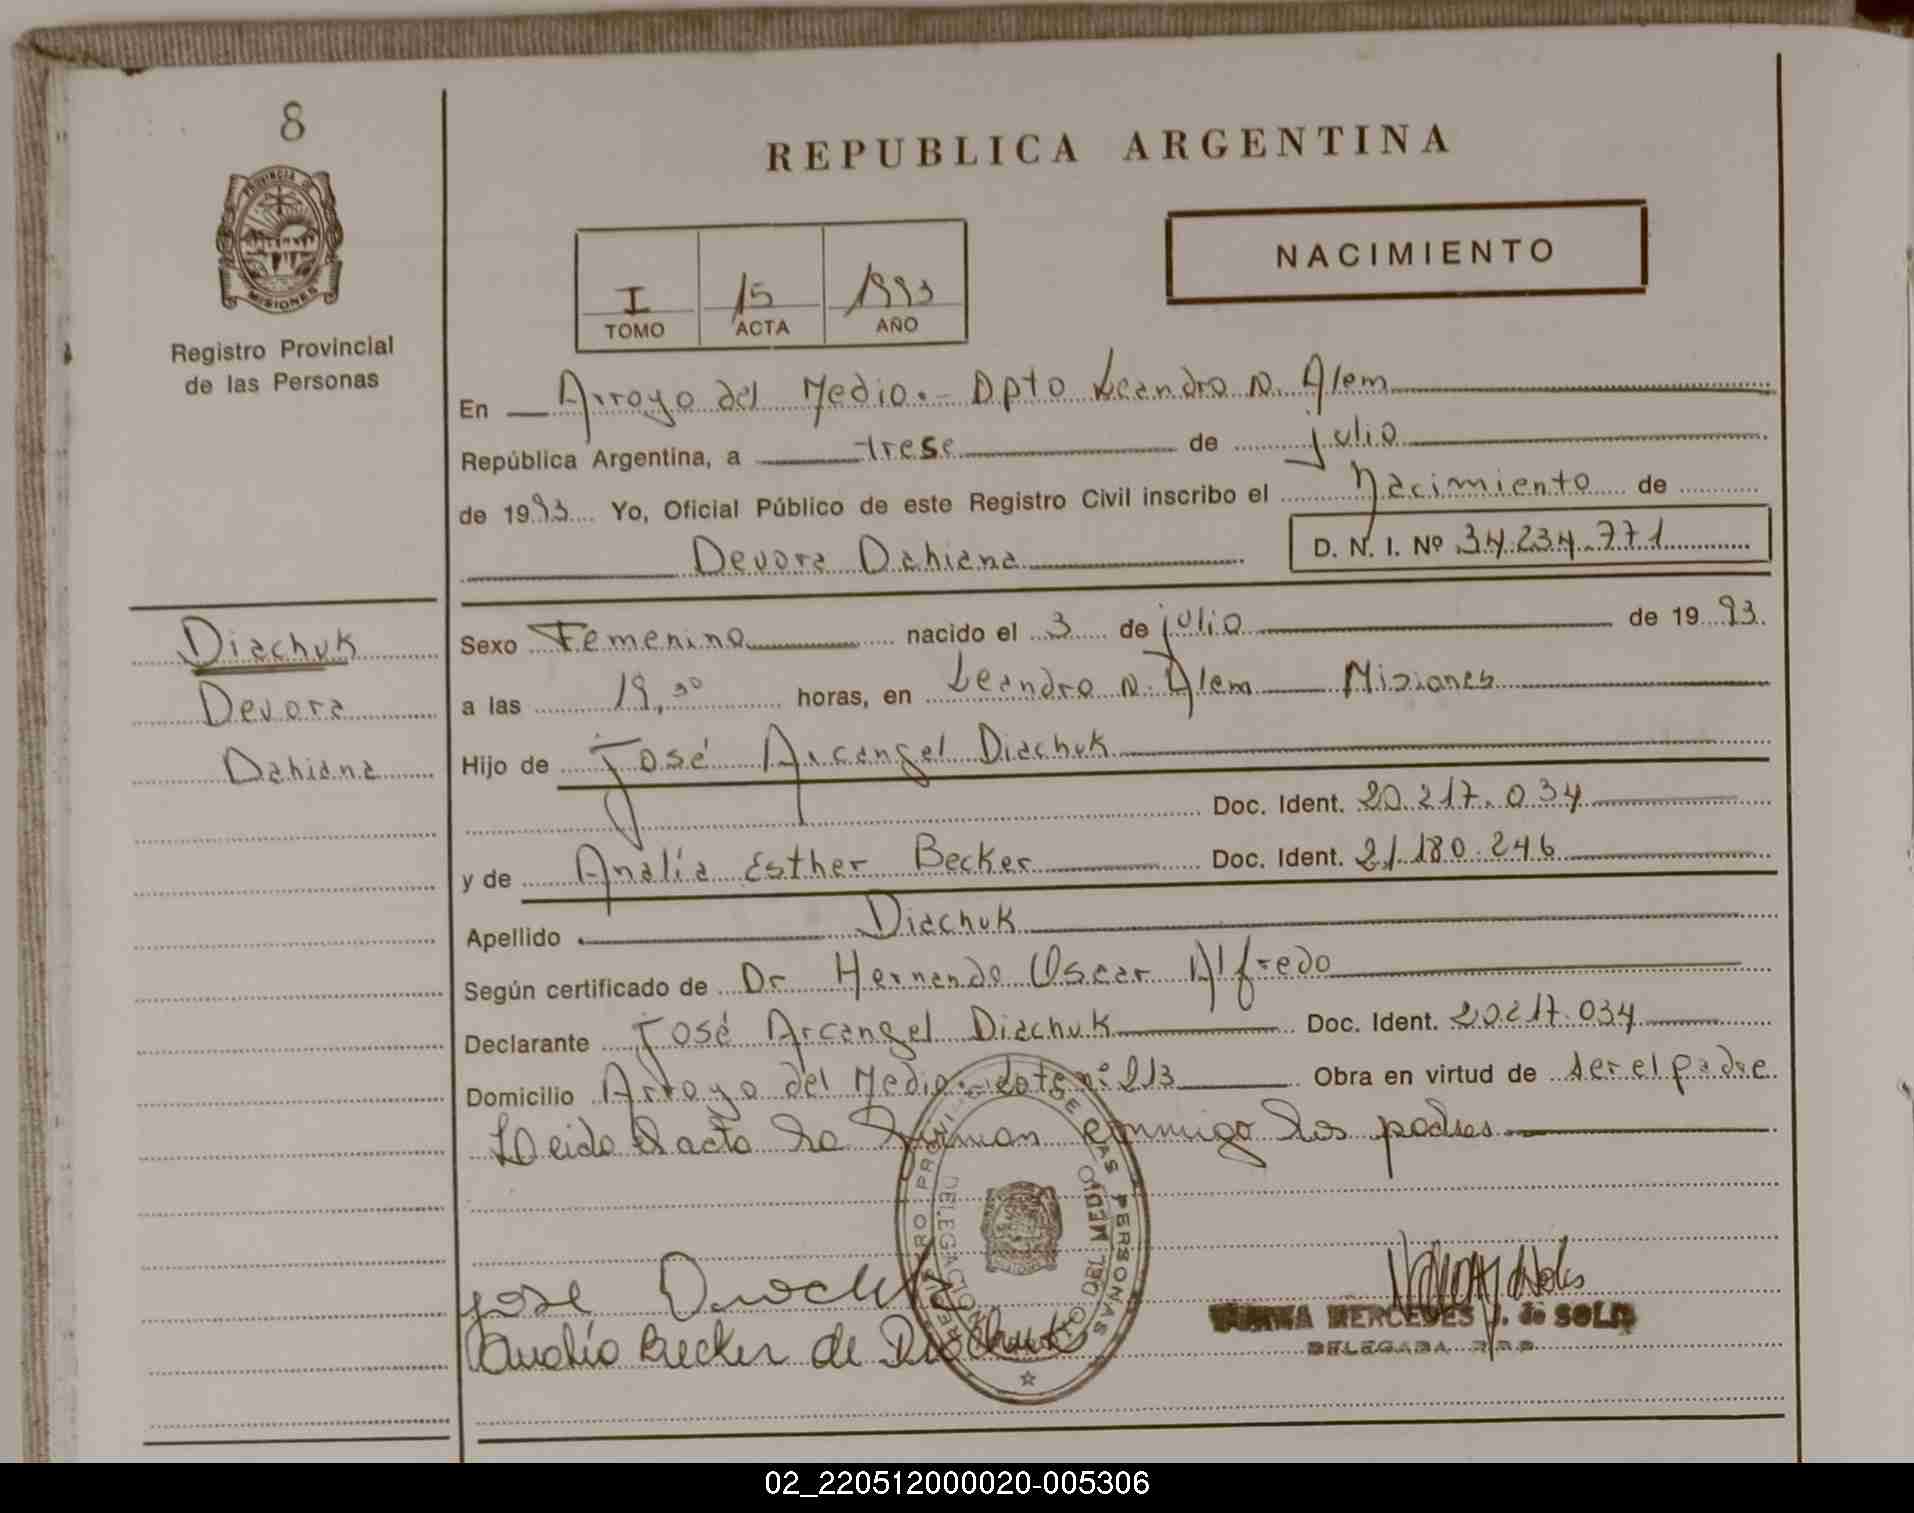 8
REPUBLICA ARGENTINA
PROVINCIA DE
MISIONES
Registro Provincial
de las Personas
I 15 1993
TOMO ACTA AÑO
NACIMIENTO
En Arroyo del Medio.- Dpto Leandro N. Alem
República Argentina, a trese de julio
de 1993 Yo, Oficial Público de este Registro Civil inscribo el Nacimiento de
Devora Dahiana D. N. I. Nº 34.234.771
Diachuk
Devora
Dahiana
Sexo Femenino nacido el 3 de julio de 1993.
a las 19,30 horas, en Leandro N. Alem Misiones
Hijo de José Arcangel Diachuk
Doc. Ident. 20.217.034
y de Analía Esther Becker Doc. Ident. 21.180.246
Apellido Diachuk
Según certificado de Dr Hernando Oscar Alfredo
Declarante José Arcangel Diachuk Doc. Ident. 20.217.034
Domicilio Arroyo del Medio.- Lote nº 213 Obra en virtud de ser el padre
Leida el acta la firman conmigo los padres
REGISTRO PROVINCIAL DE LAS PERSONAS
DELEGACION ARROYO DEL MEDIO
José Diachuk
Analía Becker de Diachuk
MERCEDES J. de SOLIS
DELEGADA R.P.P.
02_220512000020-005306